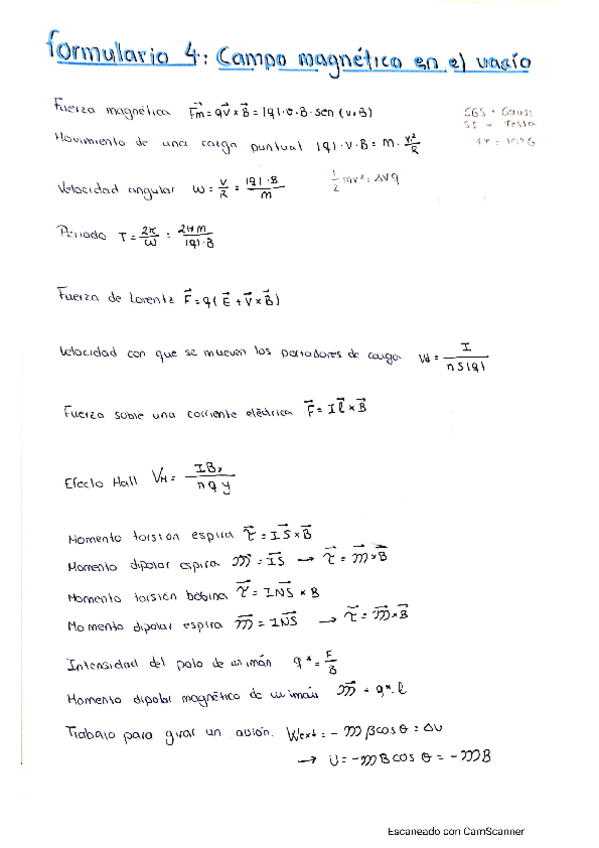 formulario 4: Campo magnético en el vacío
Fuerza magnética F⃗m = qv⃗ × B⃗ = |q|·v·B·sen (v,B)
CGS → Gauss
SI → Tesla
Movimiento de una carga puntual |q|·v·B = m·v²/R
1T = 10⁴G
Velocidad angular ω = v/R = |q|·B/m
1/2 mv² = ΔVq
Periodo T = 2π/ω = 2πm/|q|·B
Fuerza de Lorentz F⃗ = q(E⃗ + v⃗ × B⃗)
Velocidad con que se mueven los portadores de carga Vd = I/nS|q|
Fuerza sobre una corriente eléctrica F⃗ = Il⃗ × B⃗
Efecto Hall VH = IBy/nqy
Momento torsión espira τ⃗ = IS⃗ × B⃗
Momento dipolar espira m⃗ = IS⃗ → τ⃗ = m⃗ × B⃗
Momento torsión bobina τ⃗ = INS⃗ × B
Momento dipolar espira m⃗ = INS⃗ → τ⃗ = m⃗ × B⃗
Intensidad del polo de un imán q* = F/B
Momento dipolar magnético de un imán m⃗ = q*·l
Trabajo para girar un Wext = - mBcos θ = ΔU
→ U = -mBcos θ = -mB
Escaneado con CamScanner